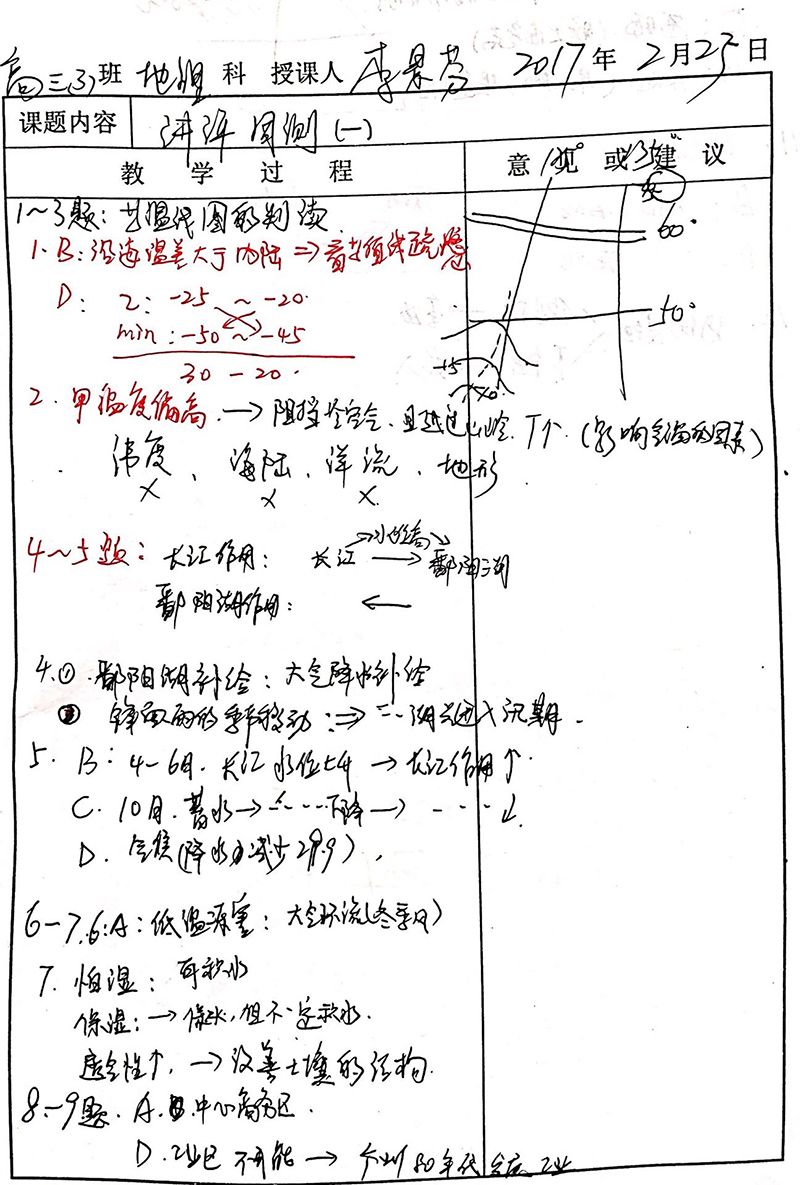 高三(3)班 地理 科 授课人 李景芬 2017年 2月25日
课题内容 讲评周测(一)
教 学 过 程 意 见 或 建 议
120° 130°
1~3题:等温线图的判读.
60°
1. B:沿海温差大于内陆 ⇒ 看等值线疏密
D: Z: -25 ~ -20.
50°
min: -50 ~ -45
30 - 20.
2. 甲温度偏高. → 阻挡冷空气、且越过山岭. T↑.(影响气温的因素)
纬度、海陆、洋流、地形
× × ×
4~5题: 长江作用: 长江 → 鄱阳湖
鄱阳湖作用: ←
4.① 鄱阳湖补给:大气降水补给
② 锋面雨的季节移动: ⇒ 湖进入汛期.
5. B: 4-6月. 长江水位上升 → 长江作用↑.
C. 10月. 蓄水 → ---- 下降 → ---- ↓.
D. 气候(降水 减少 2月.9),
6-7. 6:A:低温冻害: 大气环流(冬季风)
7. 怕湿: 耳积水
保湿: → 保水, 但不一定积水.
透气性↑, → 改善土壤的结构.
8~9题. A. B. 中心商务区.
D. 工业区 不可能 → 80年代 工业